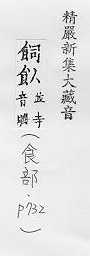 精嚴新集大藏音
飼飤 並寺音
（食部．p732）